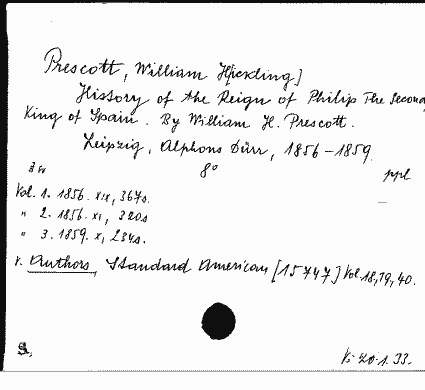 Prescott, William H[ickling]
History of the Reign of Philip The Second
King of Spain. By William H. Prescott.
Leipzig, Alphons Dürr, 1856-1859.
3 w 8° ppl
Vol. 1. 1856. XIX, 367s.
" 2. 1856. XI, 320s
" 3. 1859. X, 234s.
v. Authors, Standard American [15747] Vol. 18,19,40.
S. K 20.1.33.